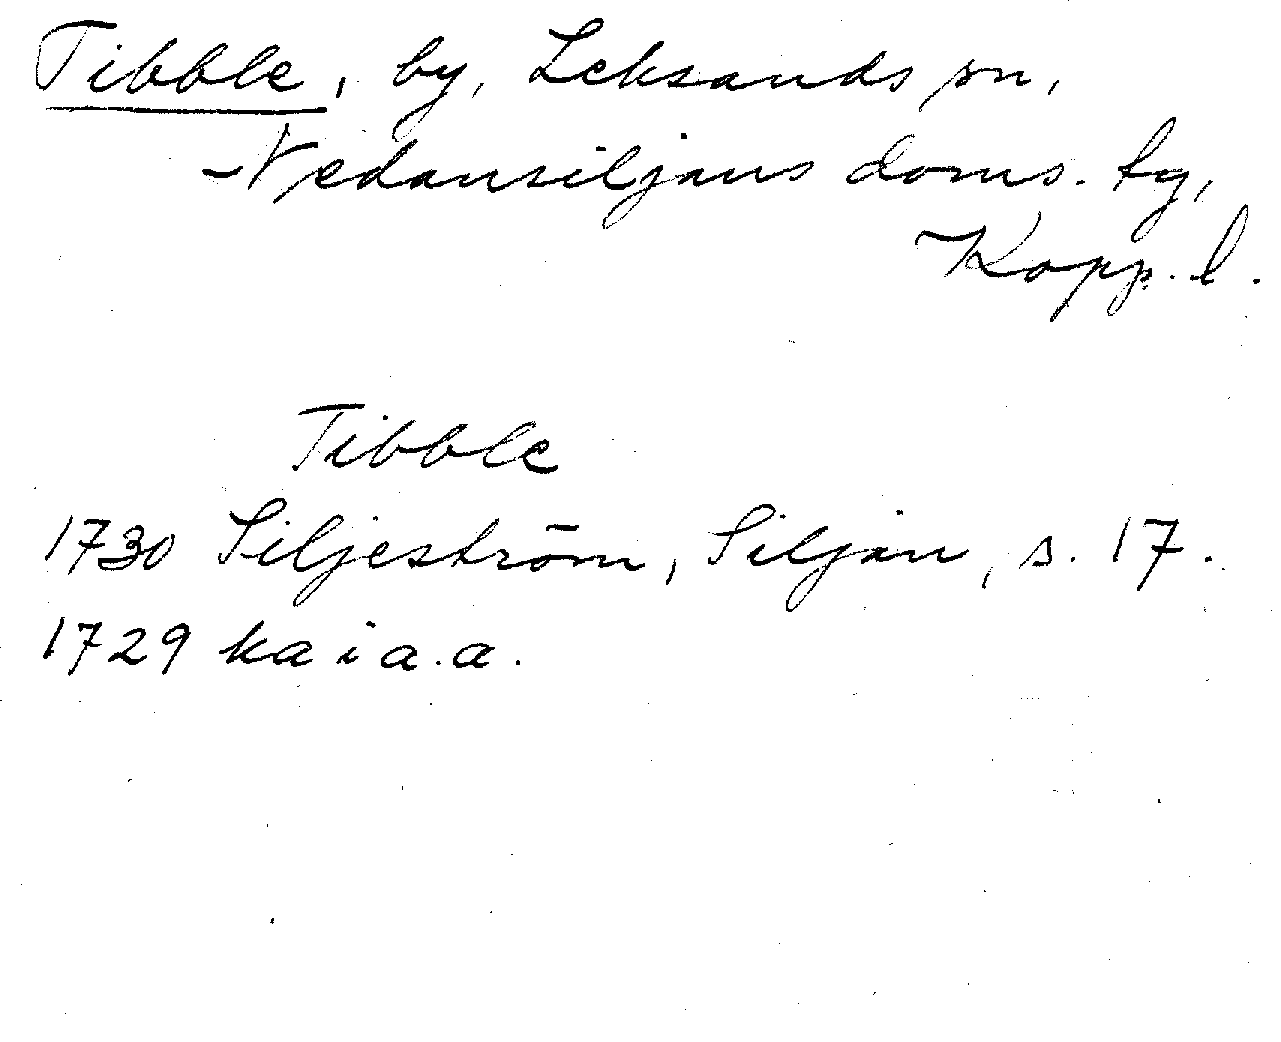 Tibble, by, Leksands sn,
Nedansiljans doms. fg,
Kopp. l.
Tibble
1730 Siljeström, Siljan, s. 17.
1729 ka i a.a.